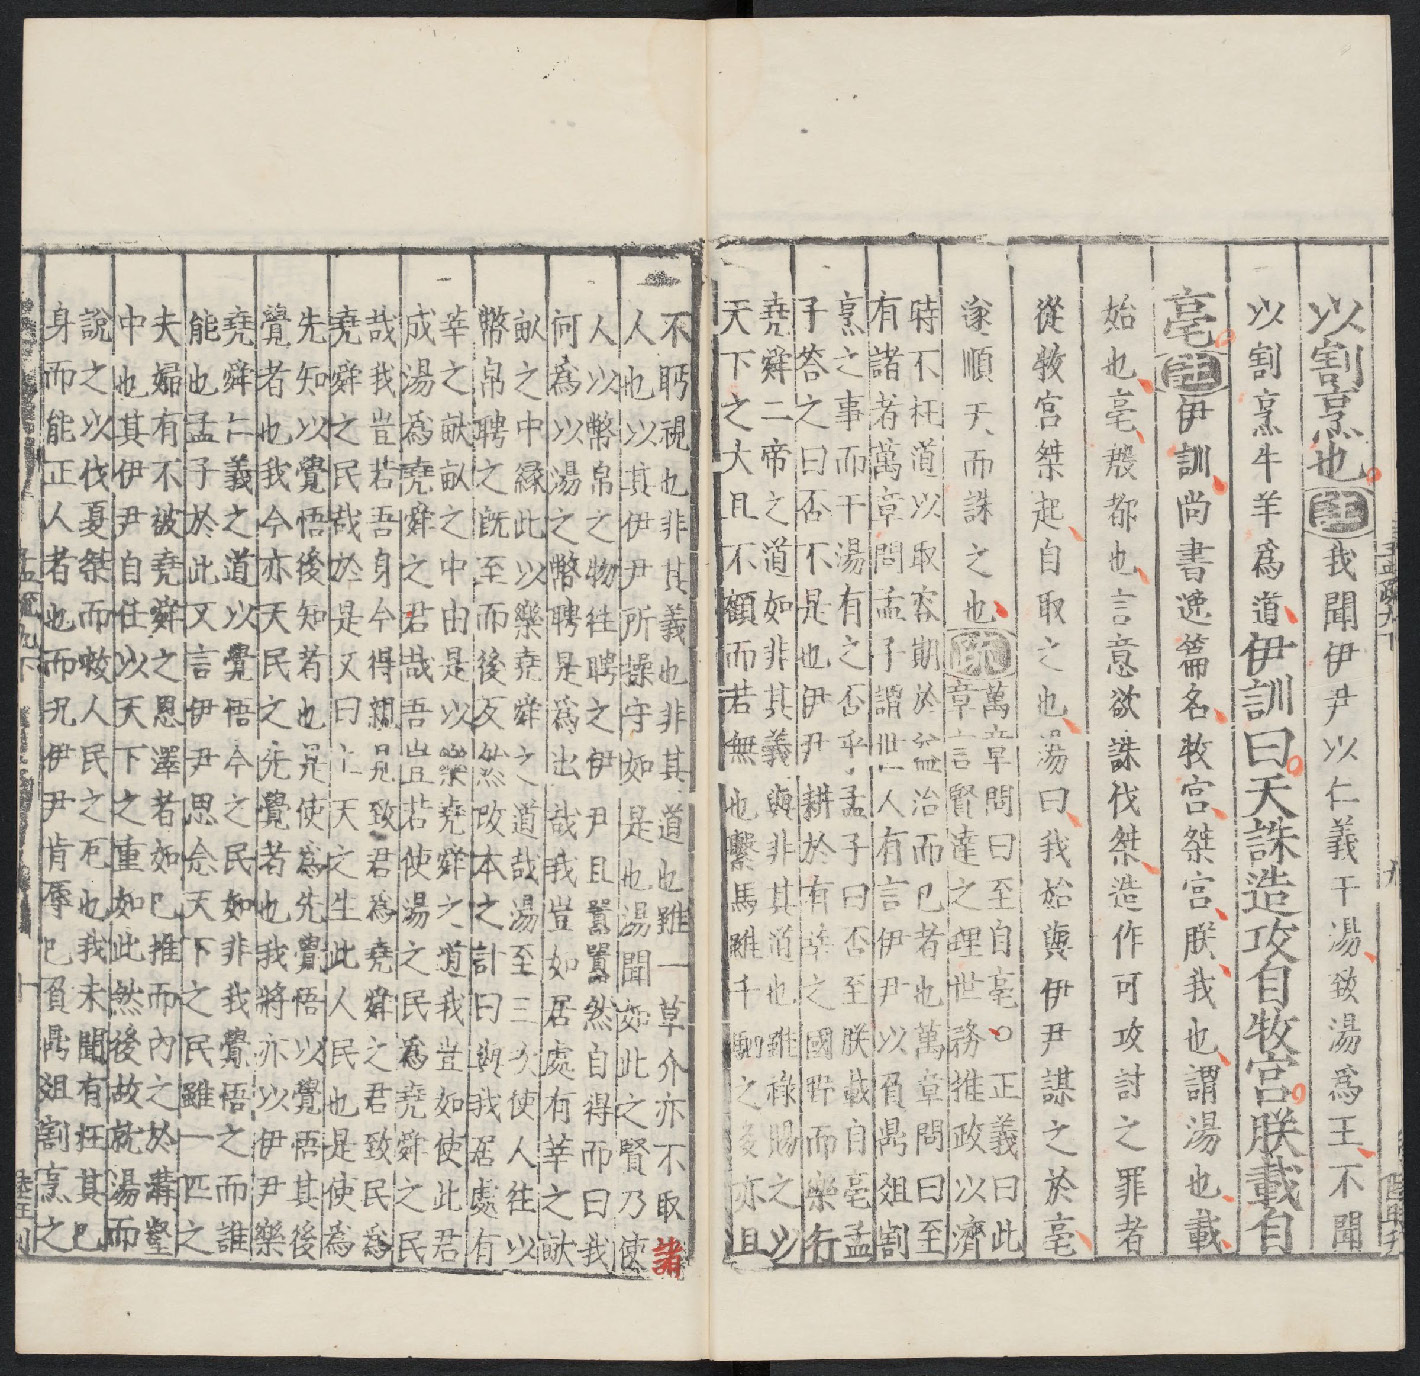 以割烹也註我聞伊尹以仁義干湯致湯爲王不聞
以割烹牛羊爲道伊訓曰天誅造攻自牧宮朕載自
亳註伊訓尚書逸篇名牧宮桀宮朕我也謂湯也載
始也亳殷都也言意欲誅伐桀造作可攻討之罪者
從牧宮桀起自取之也湯曰我始與伊尹謀之於亳
遂順天而誅之也疏萬章問曰至自亳○正義曰此
章言賢達之理世務推政以濟
時不枉道以取容期於益治而已者也萬章問曰至
有諸者萬章問孟子謂世人有言伊尹以負鼎俎割
烹之事而干湯有之否乎孟子曰否至朕載自亳孟
子答之曰否不是也伊尹耕於有莘之國野而樂行
堯舜二帝之道如非其義與非其道也雖祿賜之以
天下之大且不顧而若無也繫馬雖千駟之多亦且
不眄視也非其義也非其道也雖一草介亦不取諸
人也以其伊尹所操守如是也湯聞如此之賢乃使
人以幣帛之物往聘之伊尹且囂囂然自得而曰我
何爲以湯之幣聘是爲出哉我豈如居處有莘之畎
畝之中緣此以樂堯舜之道哉湯至三次使人往以
幣帛聘之旣至而後反然改本之計曰與我居處有
莘之畎畝之中由是以樂堯舜之道我豈如使此君
成湯爲堯舜之君哉吾豈若使湯之民爲堯舜之民
哉我豈若吾身今得親見致君爲堯舜之君致民爲
堯舜之民哉於是又曰上天之生此人民也是使爲
先知以覺悟後知者也是使爲先覺悟以覺悟其後
覺者也我今亦天民之先覺者也我將亦以伊尹樂
堯舜仁義之道以覺悟今之民如非我覺悟之而誰
能也孟子於此又言伊尹思念天下之民雖一匹之
夫婦有不被堯舜之恩澤者如己推而內之於溝壑
中也其伊尹自任以天下之重如此然後故就湯而
說之以伐夏桀而救人民之厄也我未聞有枉其已
身而能正人者也而況伊尹肯辱己負鼎俎割烹之